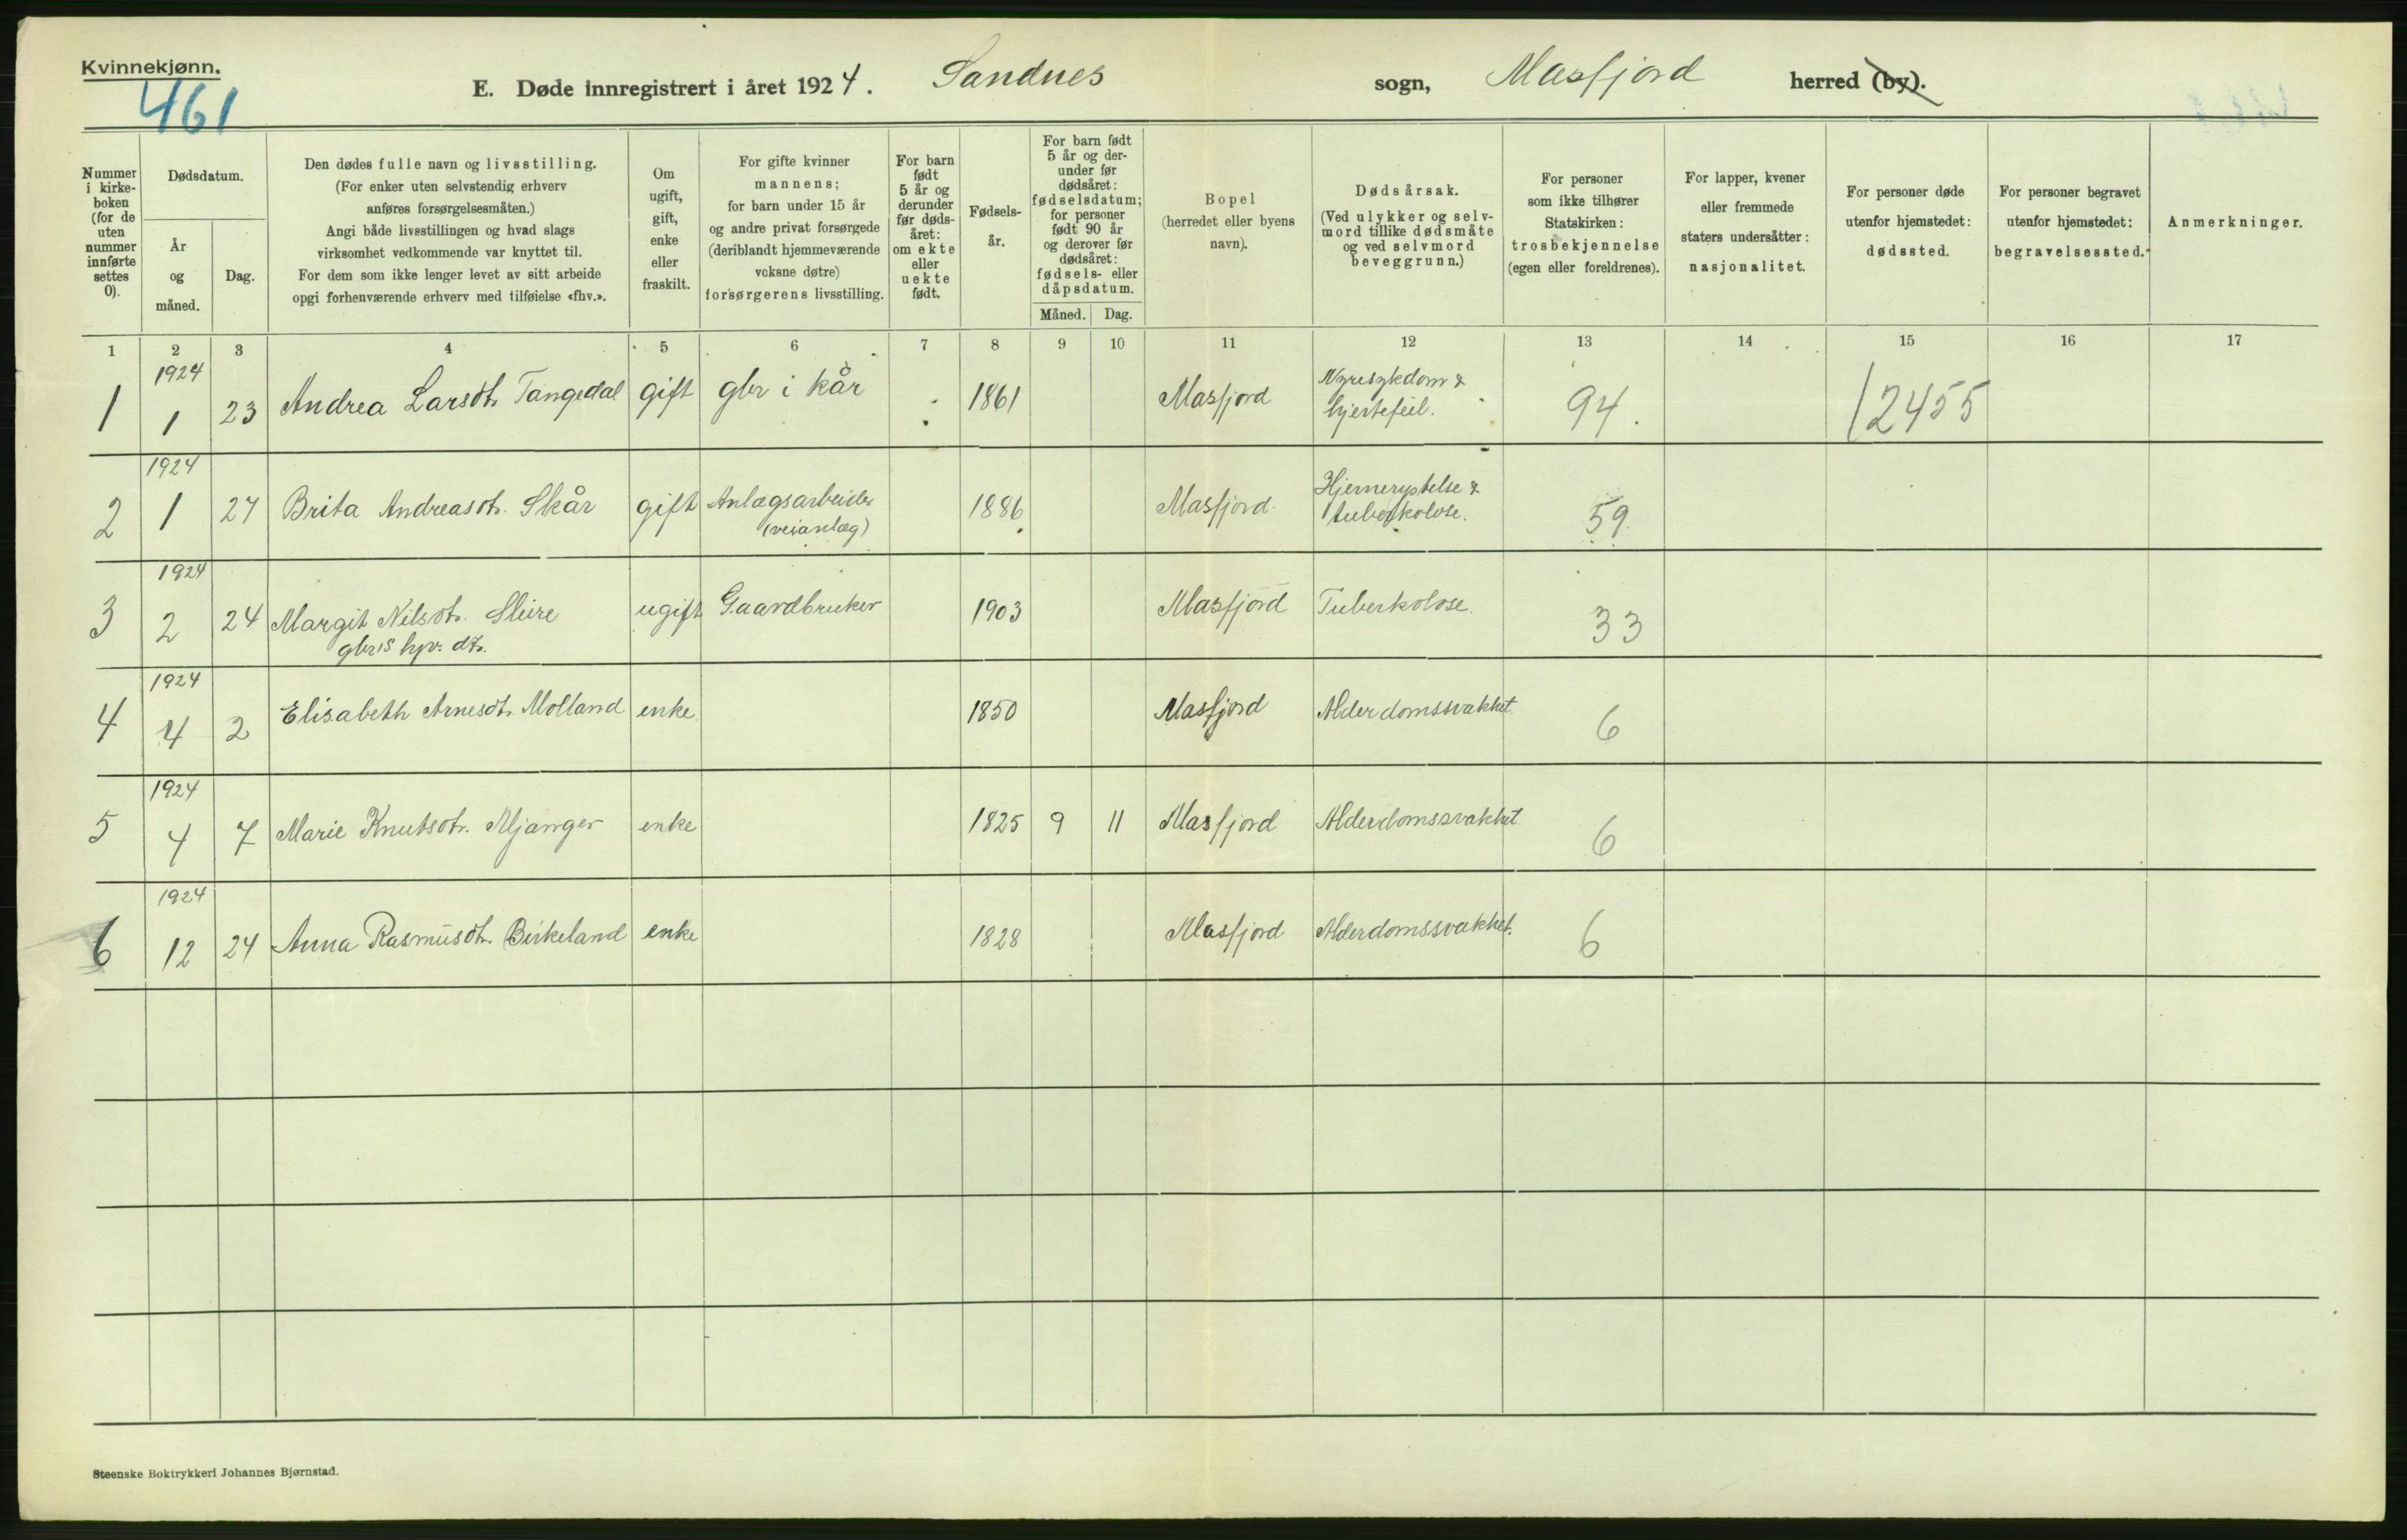 Kvinnekjønn.
461
E. Døde innregistrert i året 1924. Sandnes sogn, Masfjord herred (by).
Nummer i kirke-boken (for de uten nummer innførte settes 0).
Dødsdatum.
År og måned.
Dag.
Den dødes fulle navn og livsstilling.
(For enker uten selvstendig erhverv
anføres forsørgelsesmåten.)
Angi både livsstillingen og hvad slags
virksomhet vedkommende var knyttet til.
For dem som ikke lenger levet av sitt arbeide
opgi forhenværende erhverv med tilføielse «fhv.».
Om ugift, gift, enke eller fraskilt.
For gifte kvinner
mannens;
for barn under 15 år
og andre privat forsørgede
(deriblandt hjemmeværende
voksne døtre)
forsørgerens livsstilling.
For barn født 5 år og derunder før døds-året: om ekte eller uekte født.
Fødsels-år.
For barn født
5 år og der-
under før
dødsåret:
fødselsdatum;
for personer
født 90 år
og derover før
dødsåret:
fødsels- eller
dåpsdatum.
Måned. Dag.
Bopel
(herredet eller byens
navn).
Dødsårsak.
(Ved ulykker og selv-
mord tillike dødsmåte
og ved selvmord
beveggrunn.)
For personer
som ikke tilhører
Statskirken:
trosbekjennelse
(egen eller foreldrenes).
For lapper, kvener
eller fremmede
staters undersåtter:
nasjonalitet.
For personer døde
utenfor hjemstedet:
dødssted.
For personer begravet
utenfor hjemstedet:
begravelsessted.
Anmerkninger.
1 2 3 4 5 6 7 8 9 10 11 12 13 14 15 16 17
1924
1 1 23 Andrea Larsdt. Tangedal gift gbr i kår 1861 Masfjord Nyresykdom & hjertefeil. 94. 12455
1924
2 1 27 Brita Andreasdt. Skår gift Anlægsarbeider (veianlæg) 1886 Masfjord. Hjernerystelse & tuberkolose. 59
1924
3 2 24 Margit Nilsdt. Sleire ugift Gaardbruker 1903 Masfjord Tuberkolose. 33
gbr's hjv. dt.
1924
4 4 2 Elisabeth Arnesdt. Molland enke 1850 Masfjord Alderdomssvakhet 6
1924
5 4 7 Marie Knutsdt. Mjanger enke 1825 9 11 Masfjord Alderdomssvakhet 6
1924
6 12 24 Anna Rasmusdt. Birkeland enke 1828 Masfjord Alderdomssvakhet. 6
Steenske Boktrykkeri Johannes Bjørnstad.